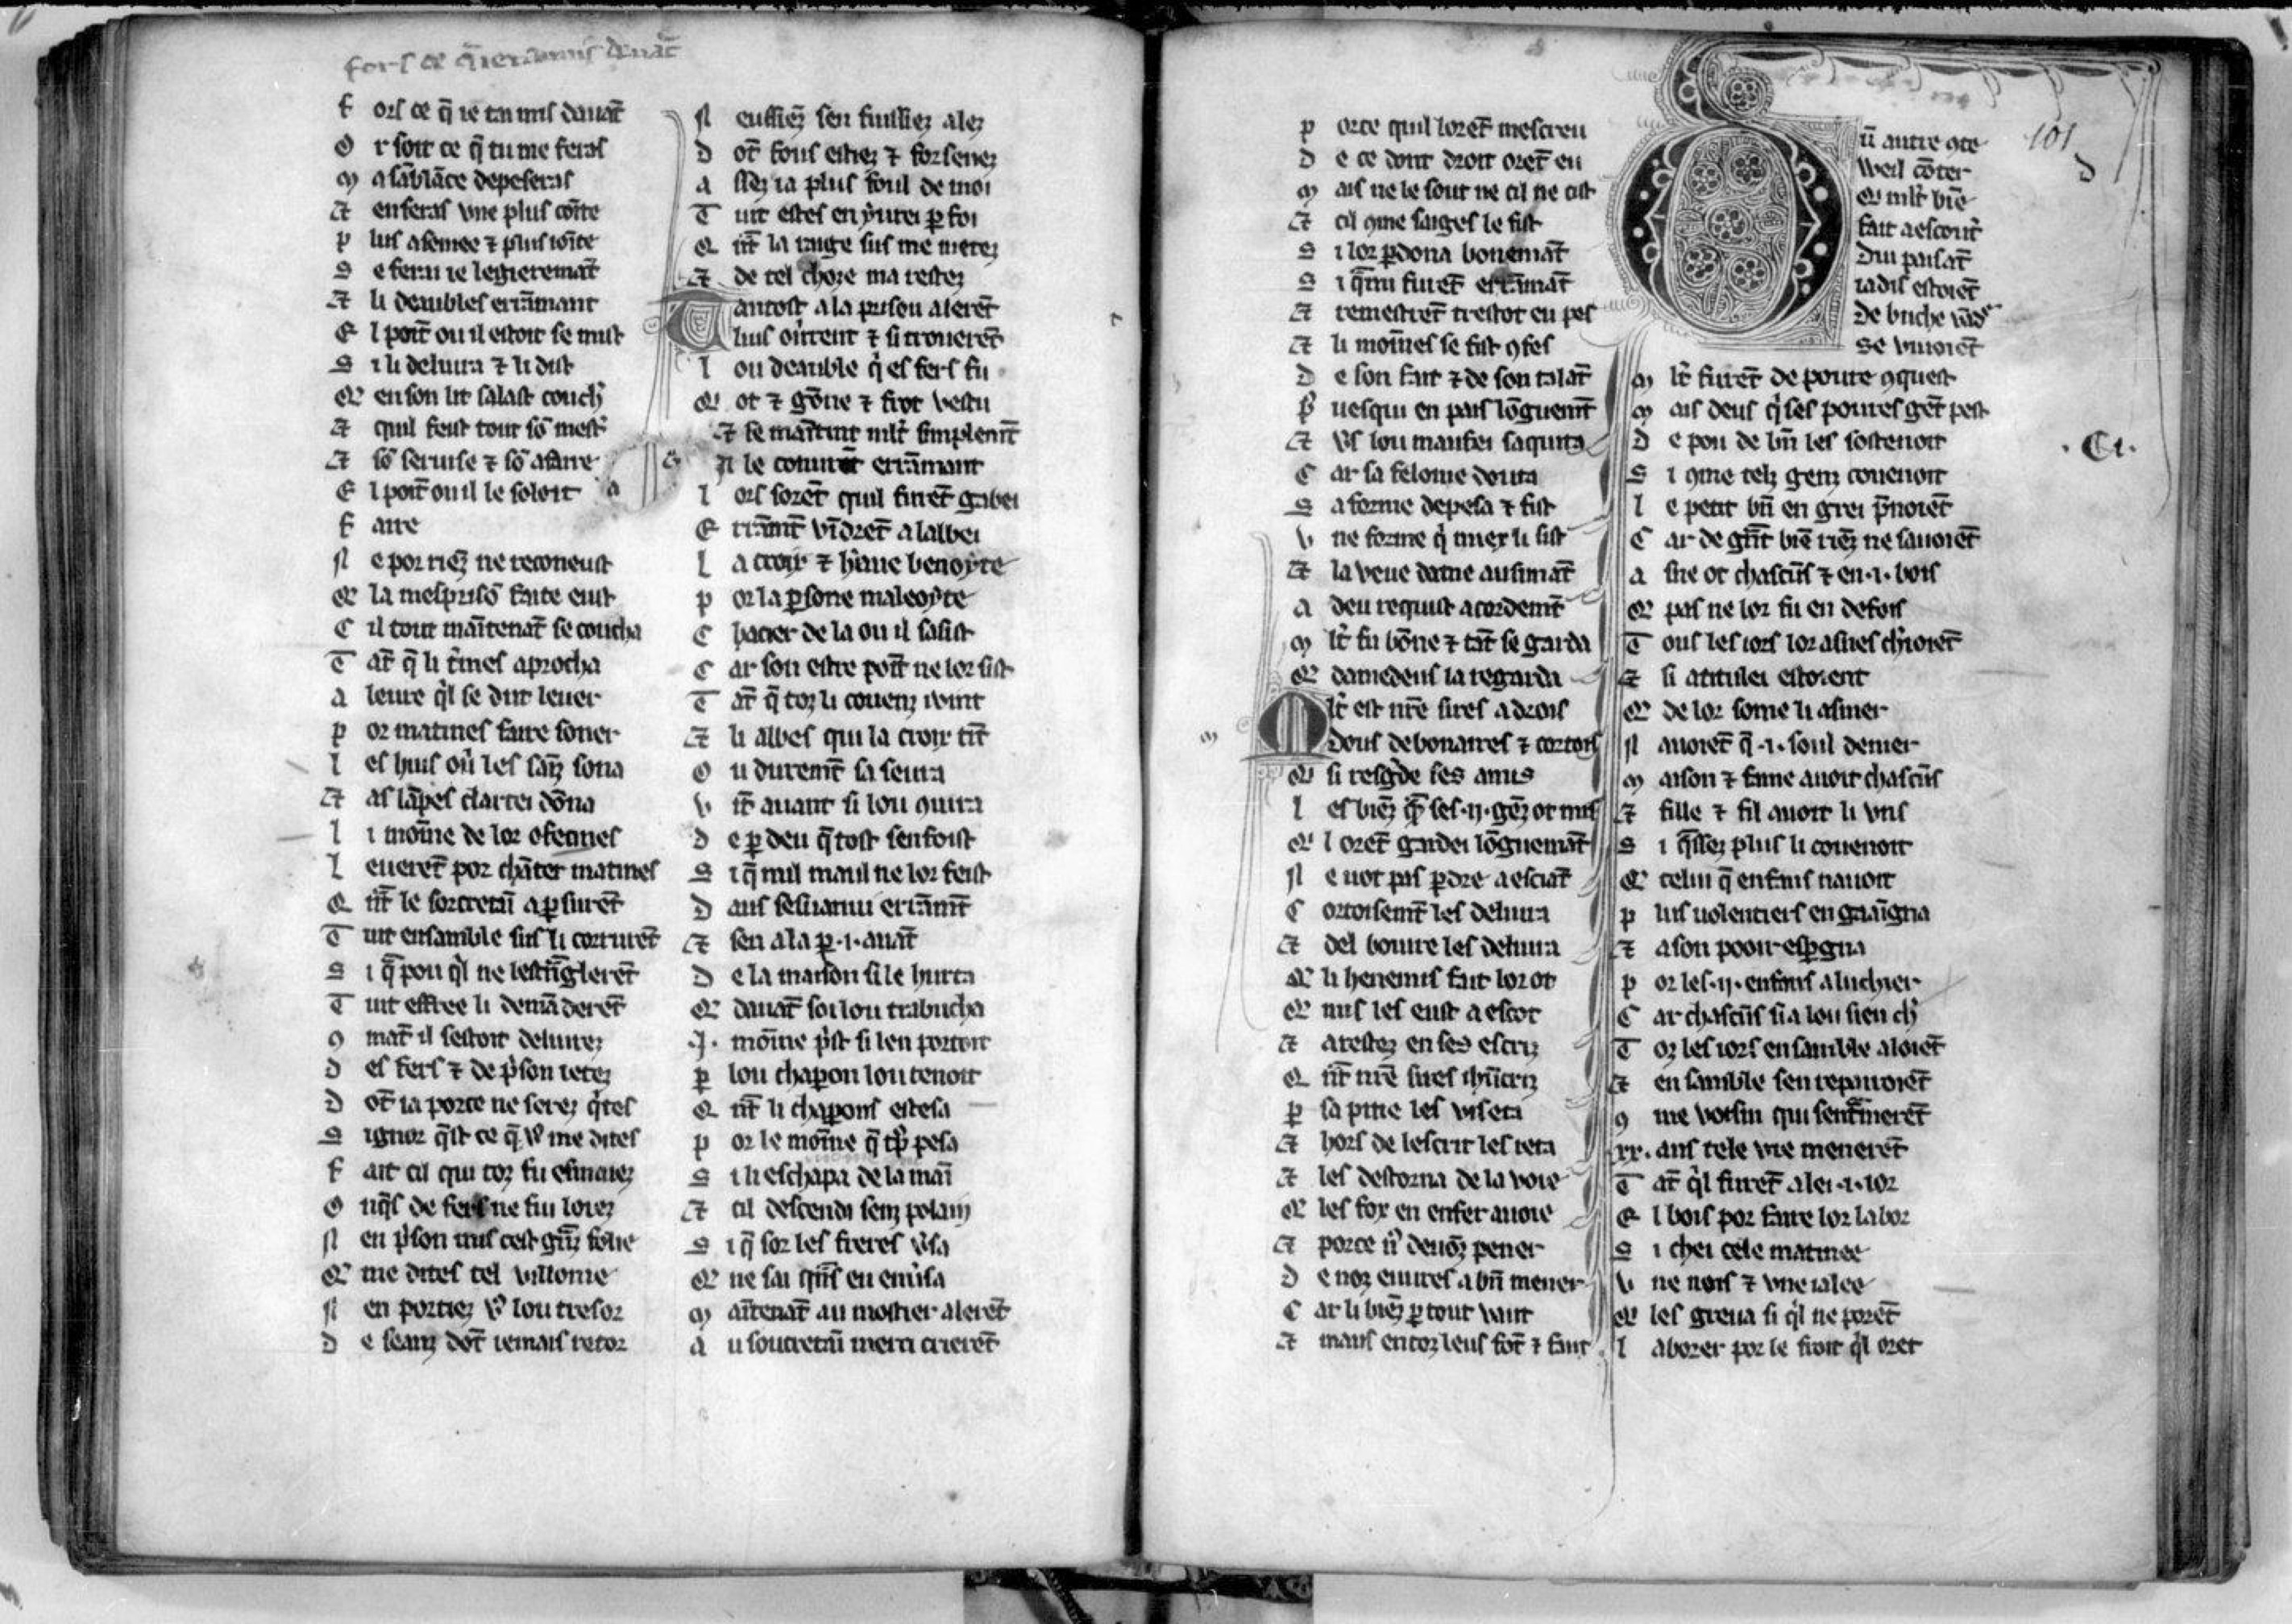 fors ce q̄ ie tai mis deuāt
F ors ce q̄ ie tai mis dauāt
O r soit ce q̄ tu me feras
M a sāblāce depeseras
Et enferas vne plus cōite
P lus asemee ⁊ plus ioīte
S e feru ie legieremāt
Et li deaubles errāmant
E l poīt ou il estoit se mist
S i li deliura ⁊ li dist
Qͥ en son lit salast couchͬ
Et quil feist tout sō mestͬ
Et sō seruise ⁊ sō afaire
E l poīt ou il le soloit a
F aire
N e por riēz ne reconeust
Qͥ la mesprisō faite eust
C il tout maītenāt se coucha
T āt q̄ li tͬmes aprocha
A leure qͥl se dut leuer
P or matines faire soner
L es huis ouͬ les sāīz sona
Et as lāpes clartei dōna
L i moīne de lor ofecines
L euerēt por chāter matines
Q n̄t le sorcretaī apͬsurēt
T uit ensamble sus li corrurēt
S i q̄ pou qͥl ne lestrāglerēt
T uit effree li demāderēt
9 māt il sestoit deliurez
D es fers ⁊ de pͥson ietez
D ōt ia porce ne serez qͥtes
S ignor qͥst ce q̄ vͦ me dites
F ait cil qui toz fu esmaiez
O nqͥs de fers ne fui loiez
N en pͥson mis cest grāz folie
Qͥ me dites tel villonie
N en portiez vͦ lou tresor
D e seanz dōt iemais retor
N eussiez sen fuissiez alez
D ōt fous estiez ⁊ forsenez
A ssez ia plus foul de moi
T uit estes en yurei ꝑ foi
Q n̄t la raige sus me metez
Et de tel chose ma restez
Tantost a la prison alerēt
Luis ouͬirent ⁊ si trouerēt
L ou deauble qͥ es fers fu
Qͥ ot ⁊ gōne ⁊ froc vestu
Et se maītint mlt̄ simplemn̄t
N le conurēt errāmant
L ors sorēt quil furēt gabei
E rrāmn̄t vīdrēt a lalbei
L a croiz ⁊ hiaue benoyte
P or la ꝑsone maleoyte
C hacier de la ou il salist
C ar son estre poīt ne lor sist
T āt q̄ toz li couenz ioint
Et li albes qui la croiz tīt
O u duremēt sa seura
V it auant si lou 9iura
D e ꝑ deu q̄ tost senfoist
S i q̄ nul maul ne lor feist
D aus sesuanui errāmn̄t
Et sen ala ꝑ .i. auāt
D e la maison si le hurta
Qͥ dauāt soi lou trabucha
.I. moīne pͥst si len portoit
P lou chapon lou tenoit
Q n̄t li chapons estesa
P or le moīne q̄ trͦp pesa
S i li eschapa de la maī
Et cil descendi sem polain
S i q̄ sor les freres vͬsa
Qͥ ne sai qn̄s en emͥsa
M aītenāt au mostier alerēt
A u soucretaī merci crierēt
P orce quil lorēt mescreu
D e ce dont droit orēt eu
M ais ne le sout ne cil ne cist
Et cil 9me saiges le fist
S i lor ꝑdona bonemāt
S i q̄nui furēt errāmāt
Et remestrēt trestot en pes
Et li moīnes se fist 9fes
D e son fait ⁊ de son talāt
P uesqui en pais lōguemn̄t
Et vͦs lou maufei saquita
C ar sa felonie douta
S a forme depesa ⁊ fist
V ne forme qͥ miex li sist
Et la veue dame ausimāt
A deu requist acordemn̄t
M lt̄ fu bōne ⁊ tāt se garda
Qͥ damedeus la regarda
Mlt̄ est nr̄e sires adrois
Dous debonaires ⁊ cortois
Qͥ si resgͣde ses amis
L es biēz q̄ ses .ij. gēz ot mis
Qͥ l orēt gardei lōguemāt
N e uot pas ꝑdre a esciāt
C ortoisemēt les deliura
Et del bouire les deliura
Qͥ li henemis fait lor ot
Qͥ nus les eust a escot
Et arestez en ses escriz
Q n̄t nr̄e sires ihūcriz
P sa pitie les viseta
Et hors de lescrit les ieta
Et les destorna de la voie
Qͥ les fox en enfer auoie
Et porce nͦ deuōz pener
D e noz euures a bn̄ mener
C ar li biēz ꝑ tout vaut
Et maus en toz leus fōt ⁊ faut
Un̄ autre 9te
Weil cōter
Qͥ mlt̄ biē
Fait a escoutͬ
Dui paisāt
iadis estoiēt
De buche vādͬe
Se viuoiēt
M lt̄ furēt de poure 9quest
M ais deus qͥ ses poures gēt pest
D e pou de bn̄ les sostenoit
S i 9me telz genz couenoit
.CI.
101
L e petit bn̄ en grei p̄noiēt
C ar de grn̄t biē riēz ne sauoiēt
A sne ot chascūs ⁊ en .i. bois
Qͥ pas ne lor fu en defois
T ous les iors lor asnes chͬioiēt
Et si atitulei estoient
Qͥ de lor some li asnier
N auoiēt q̄ .i. soul denier
M aison ⁊ fame auoit chascūs
Et fille ⁊ fil auoit li vns
S i q̄ssez plus li couenoit
Qͥ celui q̄ enfans nauoit
P lus uolentiers en gaaigna
Et a son pooir esꝑgna
P or les .ij. enfans aluchier
C ar chascūs si a lou sien chͬ
T oz les iors ensamble aloiēt
Et ensamble sen repairoiēt
9 me voisin qui sentͬamerēt
xx. ans tele vie menerēt
T āt qͥl furēt alei .i. ior
E l bois por faire lor labor
S i chei cele matinee
V ne nois ⁊ vne ialee
Qͥ les greua si qͥl ne porēt
L aborer por le froit qͥl oret